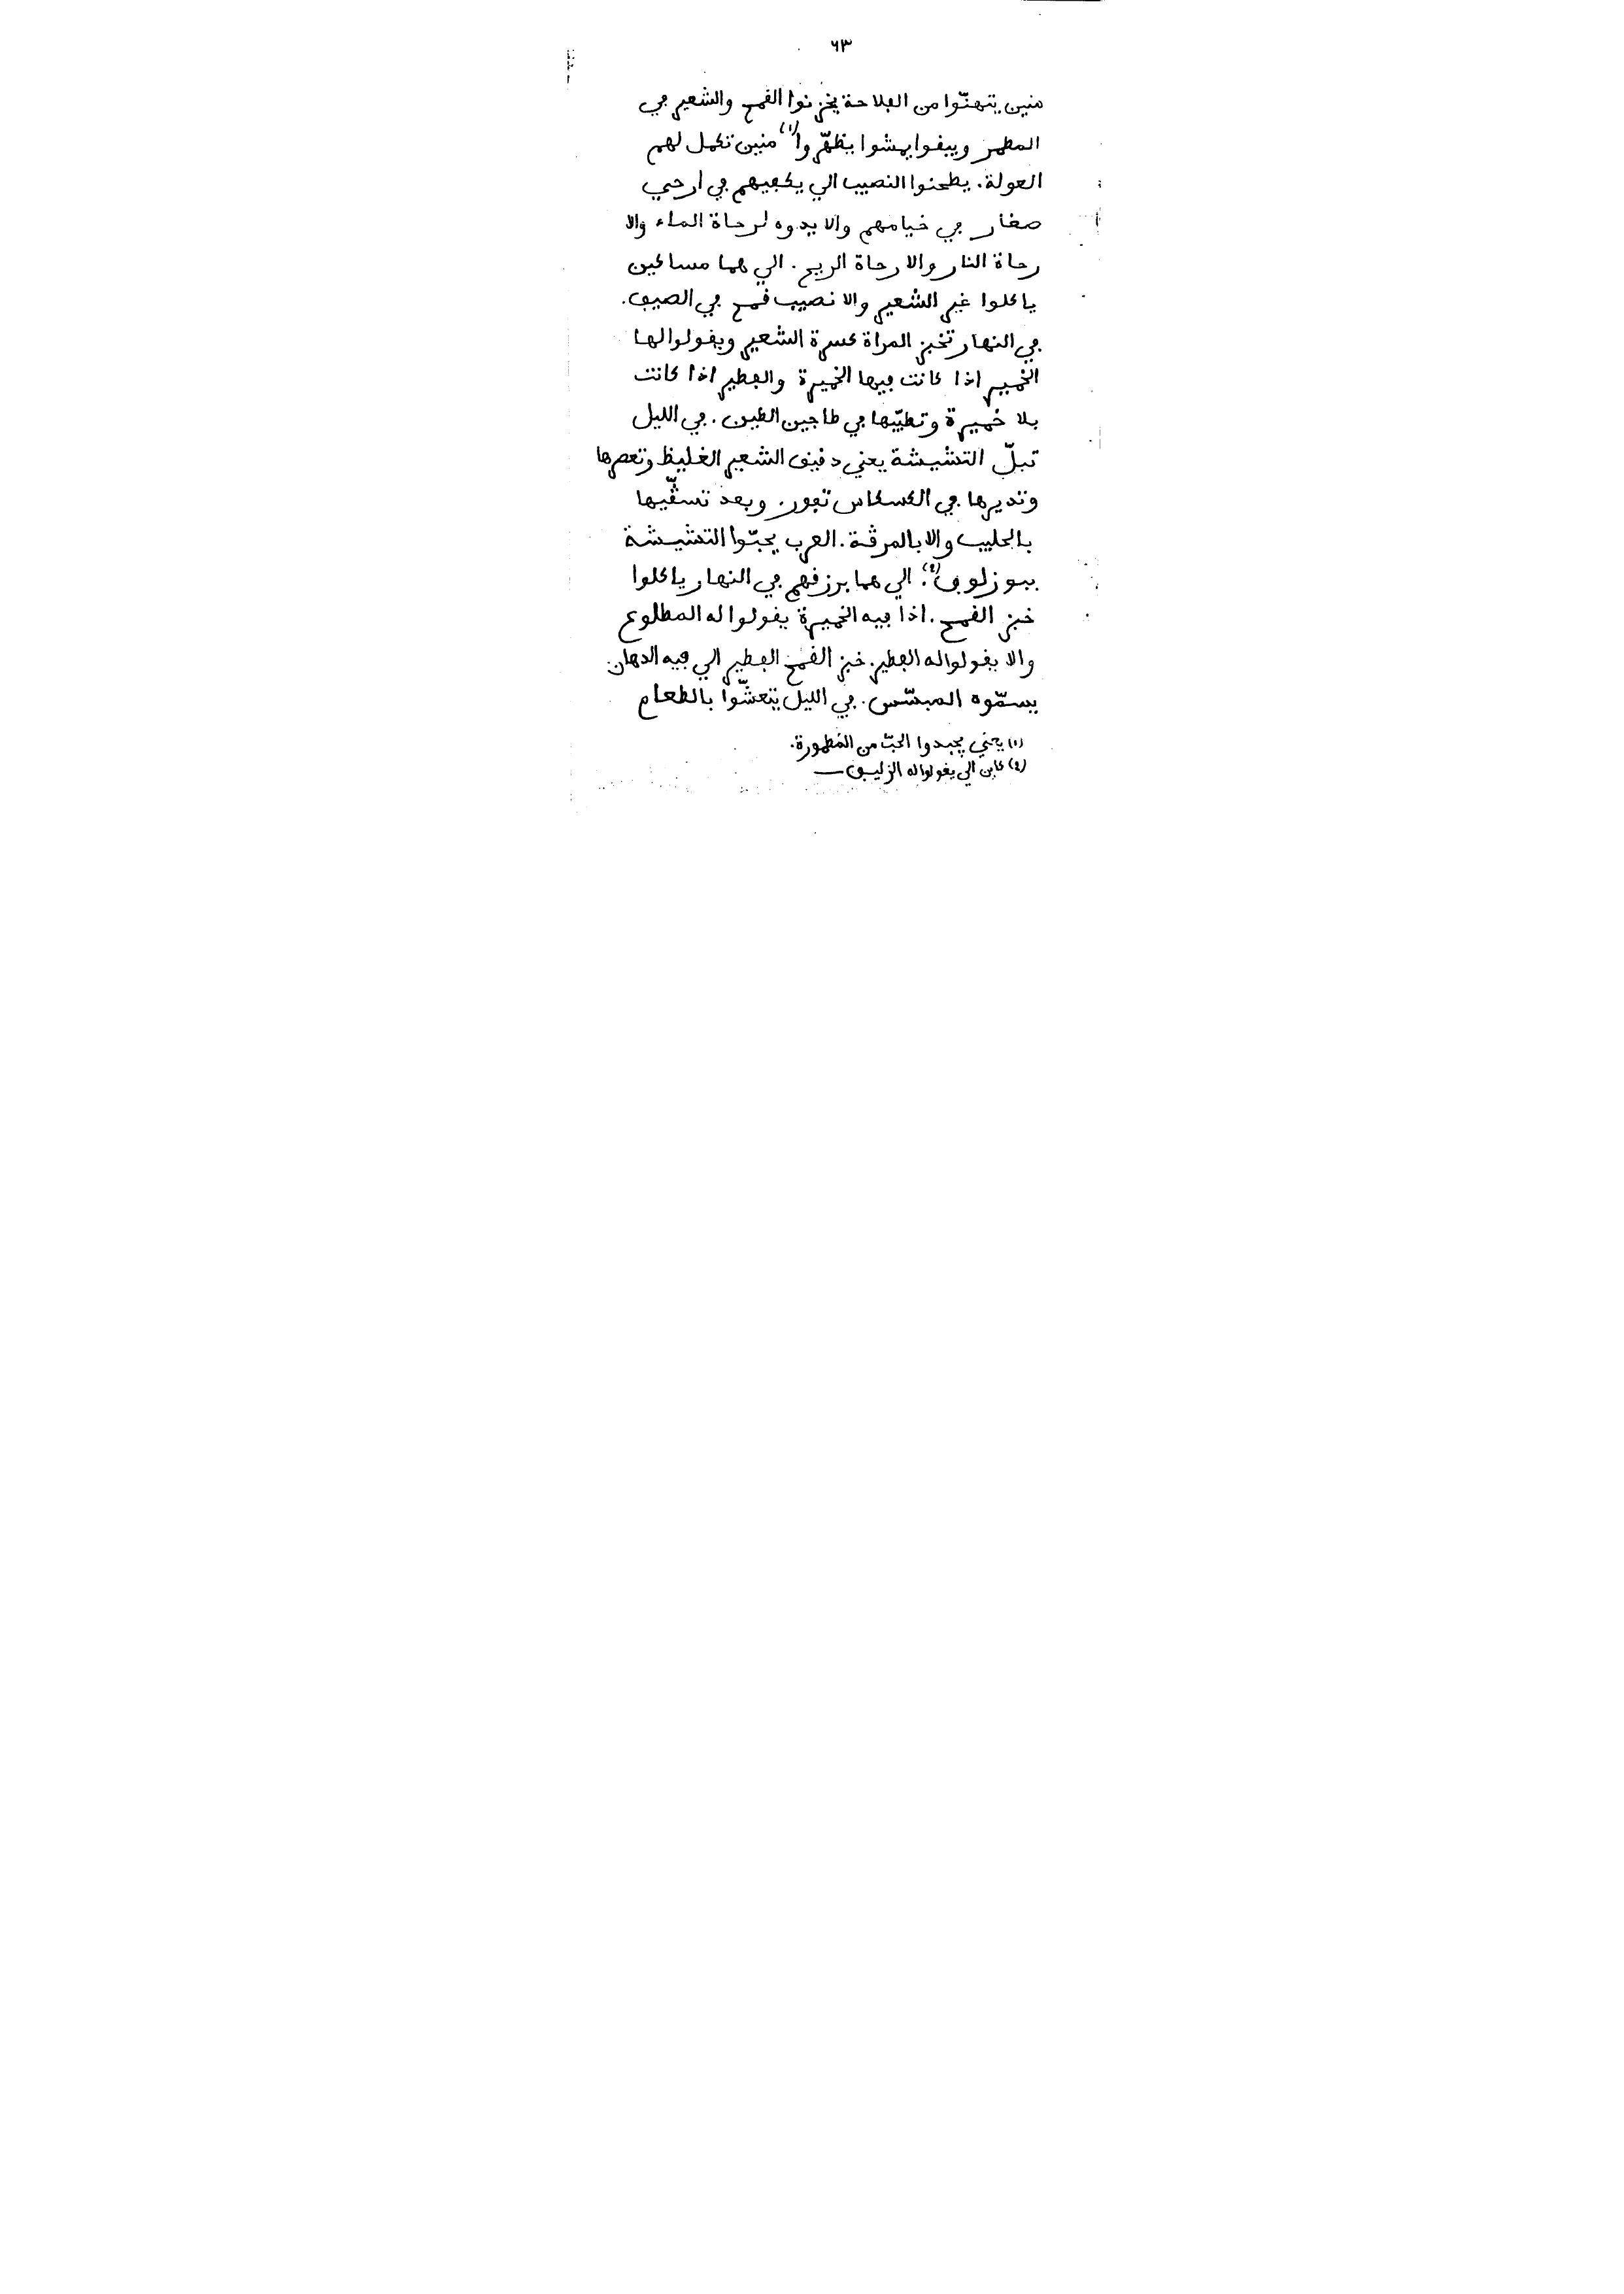 ٦٣
منين يتهنّوا من ڢلاحة يخزنوا الڧمح والشعير ڢي
المطمر ويبڧوا يمشوا يظهّروا(١) منين تكمل لهم
العولة. يطحنوا النصيب الي يكڢيهم ڢي ارحي
صغار ڢي خيامهم والا يدوه لرحاة الماء والا
رحاة النار والا رحاة الريح. الي هما مساكين
ياكلوا غير الشعير والا نصيب ڧمح ڢي الصيڢ.
ڢي النهار تخبز المراة كسرة الشعير ويڧولوا لها
الخمير اذا كانت ڢيها الخميرة والڢطير اذا كانت
بلا خميرة وتطيّبها ڢي طاجين الطين. ڢي الليل
تبلّ التشيشة يعني دڧيڧ الشعير الغليظ وتعصرها
وتديرها ڢي الكسكاس تڢور. وبعد تسڨّيها
بالحليب والا بالمرڨة. العرب يحبّوا التشيشة
ببوزلوڢ(٢). الي هما برزڧهم ڢي النهار ياكلوا
خبز الڧمح. اذا ڢيه الخميرة يڧولوا له المطلوع
والا يڧولوا له الڢطير. خبز الڧمح الڢطير الي ڢيه الدهان
يسمّوه المبسّس. ڢي الليل يتعشّوا بالطعام
(١) يعني يجبدوا الحبّ من المطمورة.
(٢) كاين الي يڧولوا له الزليڢ